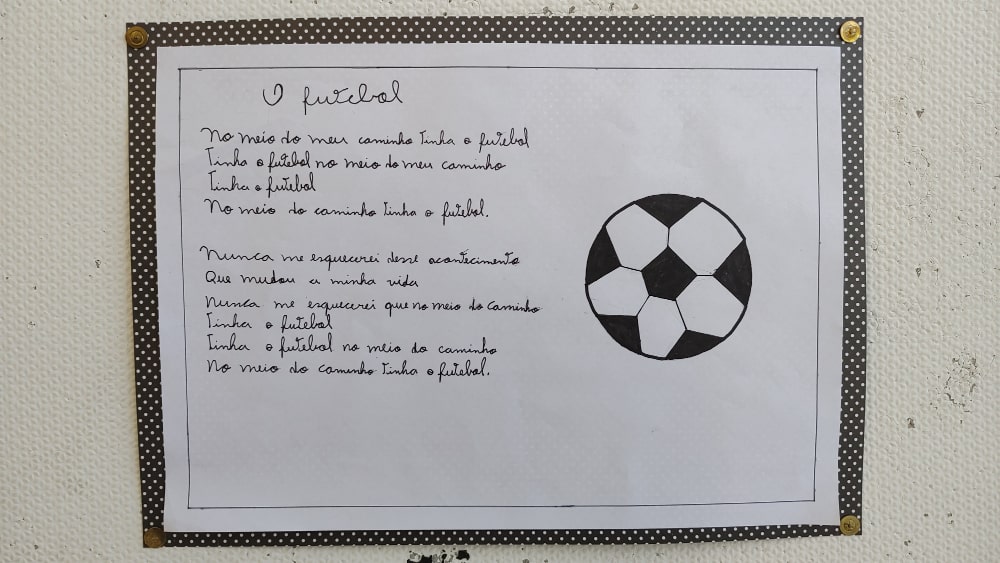 O futebol
No meio do meu caminho tinha o futebol
Tinha o futebol no meio do meu caminho
Tinha o futebol
No meio do caminho tinha o futebol.
Nunca me esquecerei desse acontecimento
Que mudou a minha vida
Nunca me esquecerei que no meio do caminho
Tinha o futebol
Tinha o futebol no meio do caminho
No meio do caminho tinha o futebol.